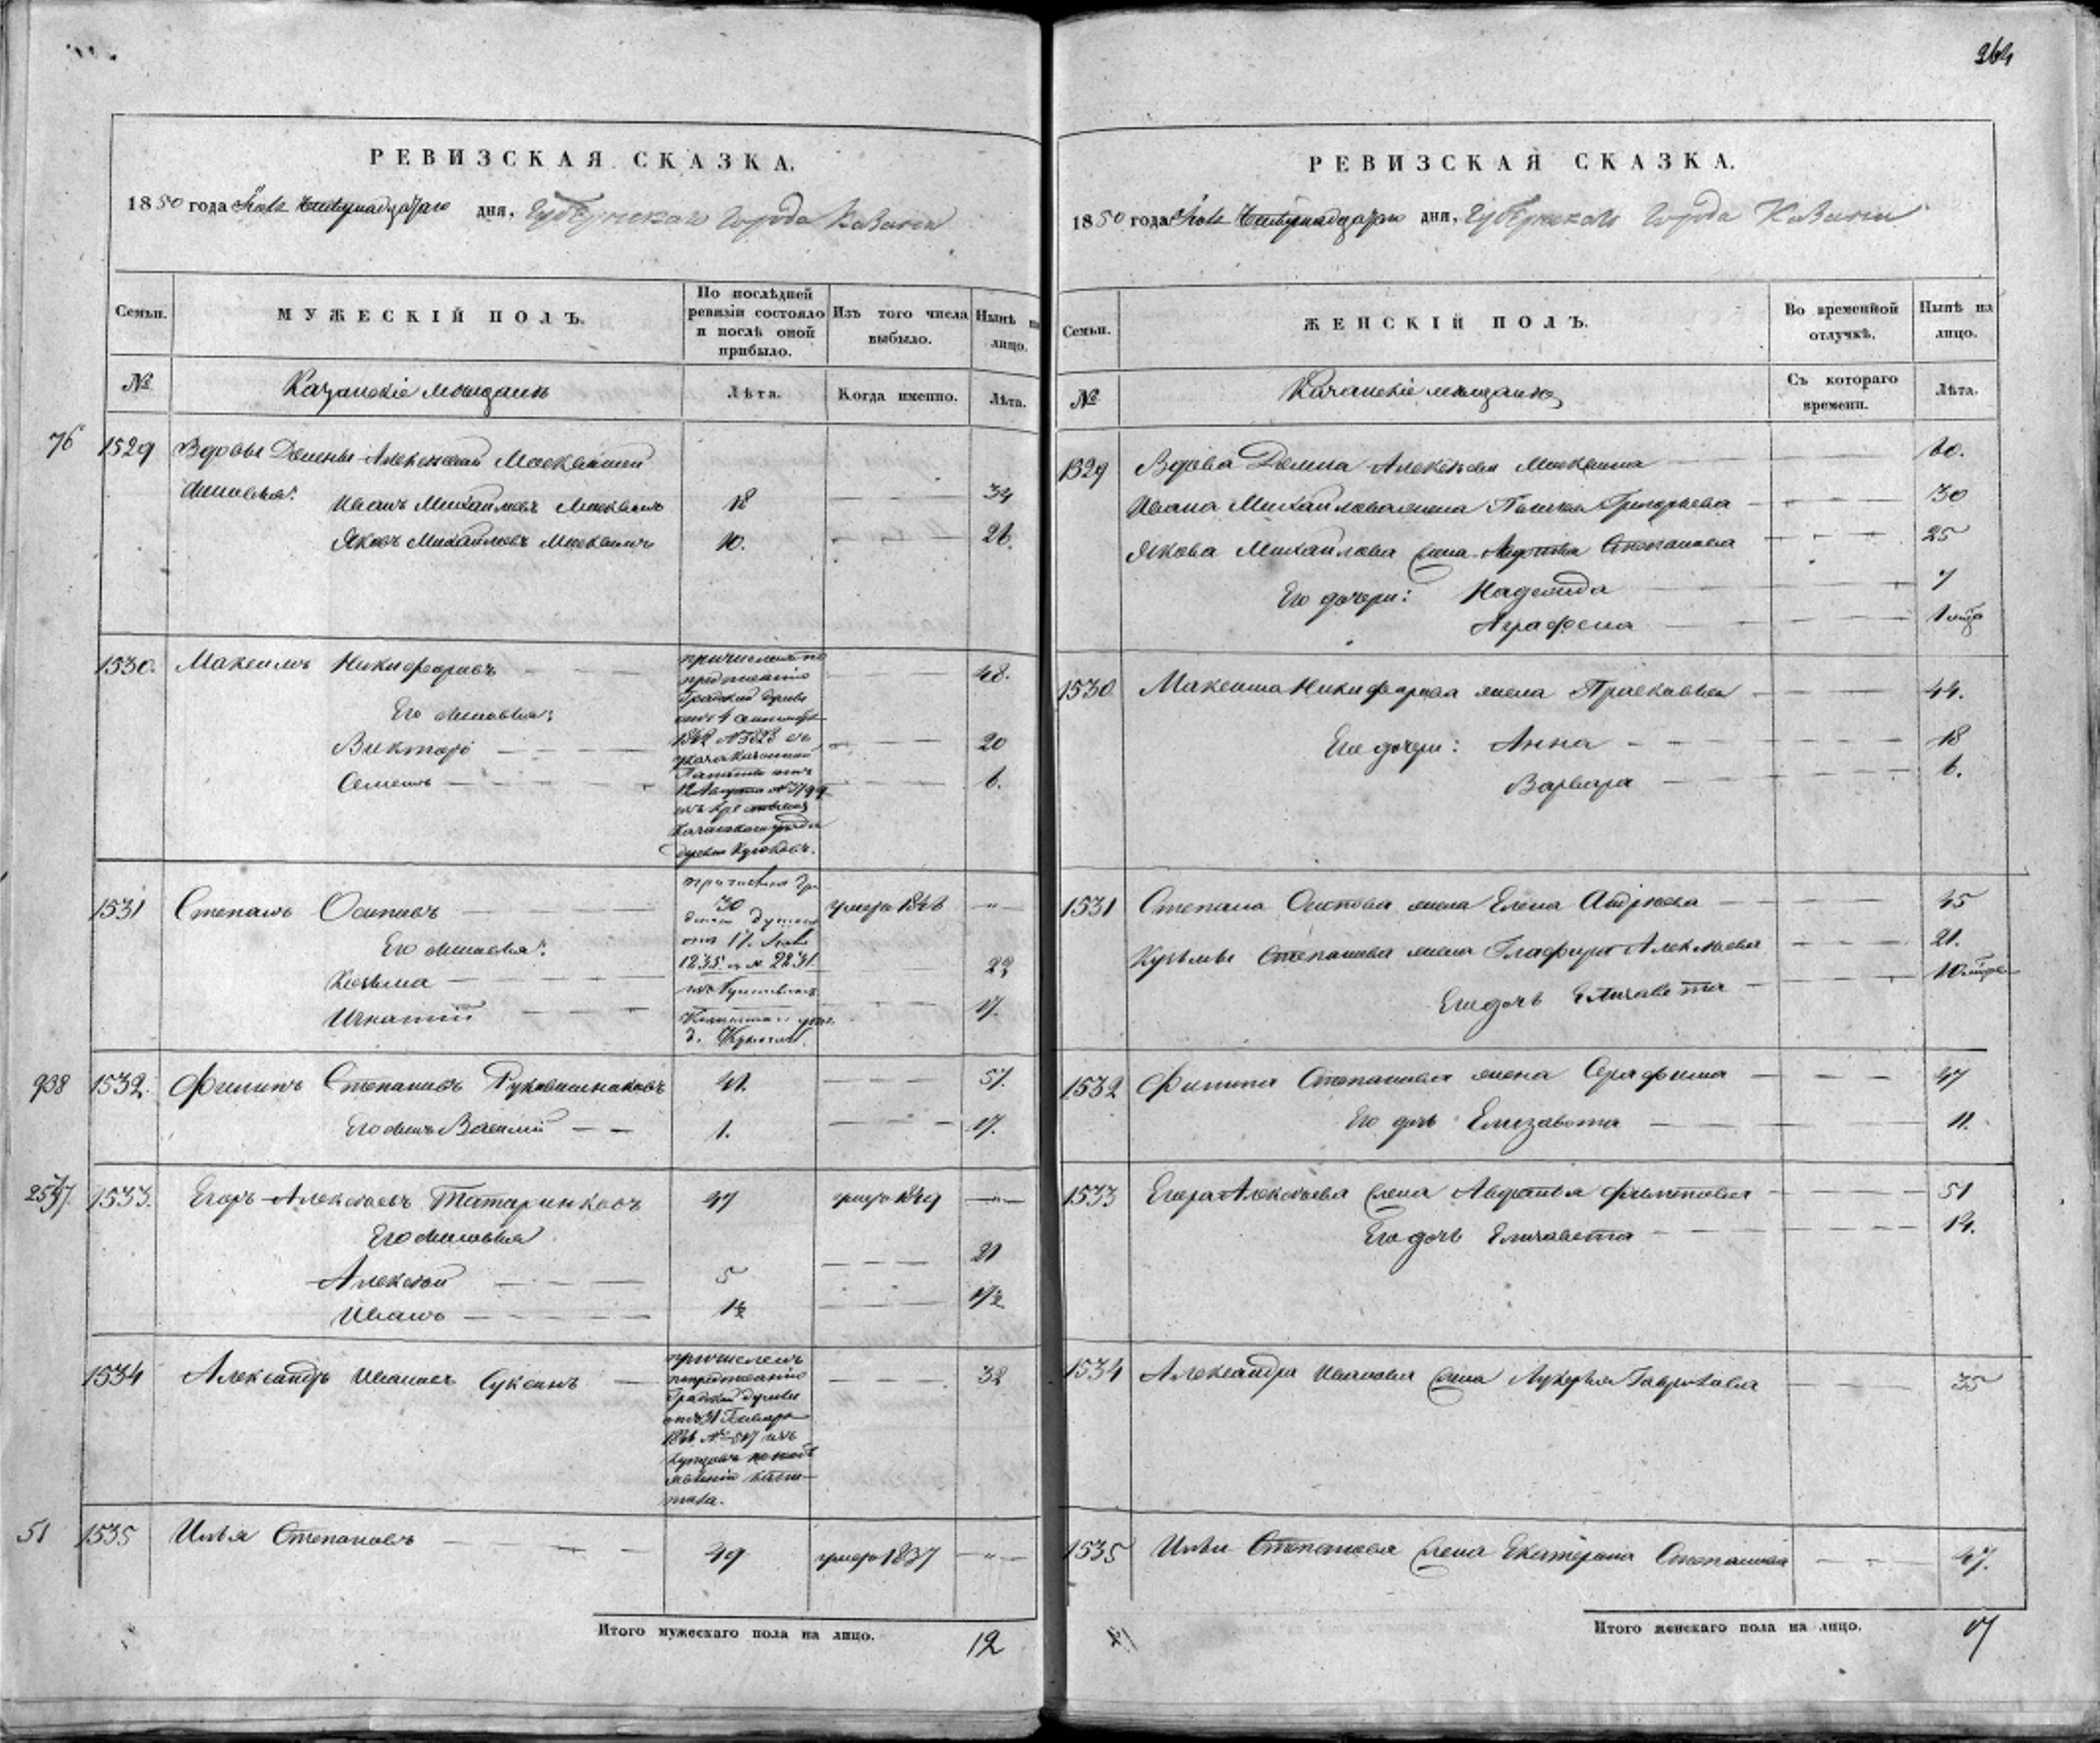 264
РЕВИЗСКАЯ СКАЗКА.
1850 года дня, Губернскаго города Казани
Семьи.
МУЖЕСКІЙ ПОЛЪ.
По послѣдней ревизіи состояло и послѣ оной прибыло.
Изъ того числа выбыло.
Нынѣ на лицо.
№
Казанскіе мѣщане
Лѣта.
Когда именно.
Лѣта.
76 1529 Вдовы Алексѣевой
сыновья: Иванъ Михайловъ 18 34
Яковъ Михайловъ 10. 26.
1530. Максимъ Никифоровъ 48.
Его сыновья:
Викторъ 20
Семенъ 6.
причисленъ по
предписанію
Градской думы
1842 № 3823
12 Августа
деревни
1531 Степанъ Осиповъ 30 умеръ 1846 "
Его сыновья:
Козьма 22
Игнатій 17.
от 17.
1835 г. № 2231
938 1532. Филипъ Степановъ Рукавишниковъ 41. 57.
Его сынъ Василій 1. 17.
2547. 1533. Егоръ Алексѣевъ Татаринковъ 47 умеръ 1849 "
Его сыновья
Алексѣй 5 21
Иванъ 1½ 17½
1534 Александръ Ивановъ Суксинъ 32
причисленъ
по предписанію
Градской думы
от 31 Генваря
51 1535 Илья Степановъ 49 умеръ 1837 "
Итого мужескаго пола на лицо. 12
РЕВИЗСКАЯ СКАЗКА.
1850 года дня, Губернскаго города Казани
Семьи.
ЖЕНСКІЙ ПОЛЪ.
Во временной отлучкѣ.
Нынѣ на лицо.
№
Казанскіе мѣщане
Съ котораго времени.
Лѣта.
1529 Вдова Алексѣева 60.
Ивана Михайлова жена Григорьева 30
Якова Михайлова жена Степанова 25
Его дочери: Надежда 7
Аграфена
1530 Максима Никифорова жена Прасковья 44.
Его дочери: Анна 18
Варвара 6.
1531 Степана Осипова жена Елена Андреева 45
Кузьмы Степанова жена Глафира Алексѣева 21.
Его дочь Елизавета
1532 Филипа Степанова жена Серафима 47
Его дочь Елизавета 11.
1533 Егора Алексѣева жена Филипова 51
Его дочь Елизавета 14.
1534 Александра Иванова жена Лукерья Гаврилова 35
1535 Ильи Степанова жена Екатерина Степанова 47.
Итого женскаго пола на лицо. 17